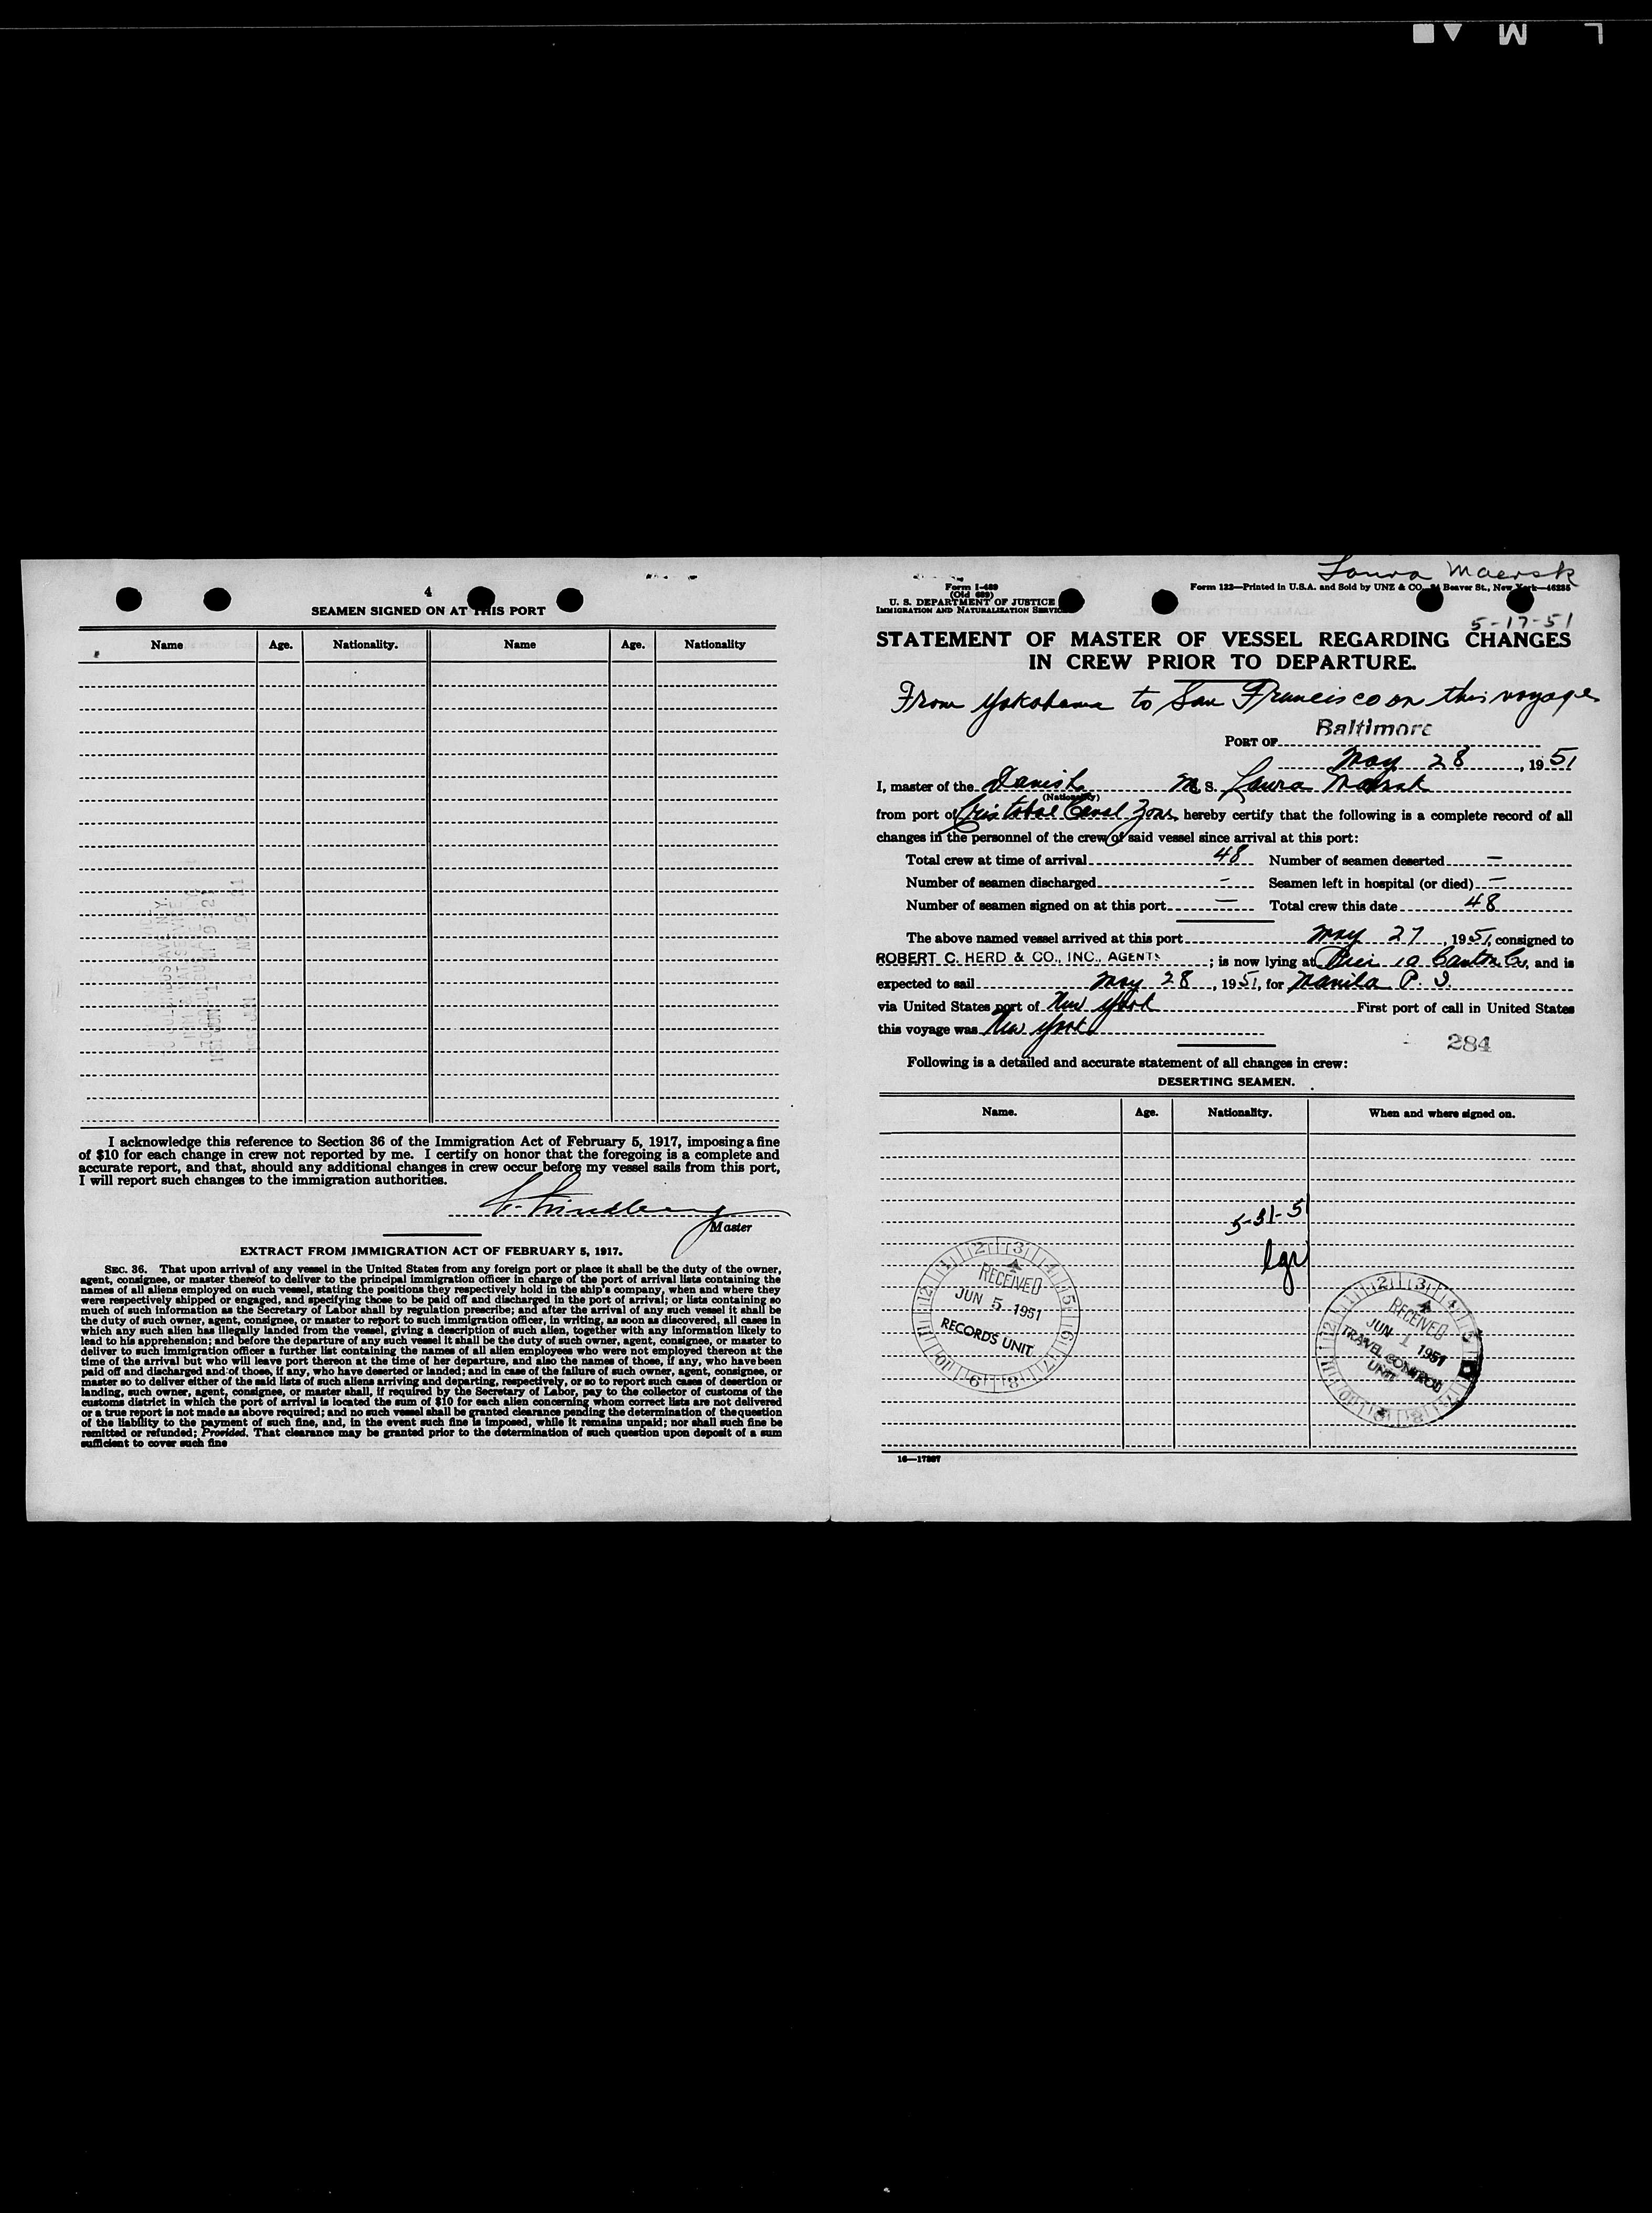 L M
4
SEAMEN SIGNED ON AT THIS PORT
Name Age. Nationality. Name Age. Nationality
I acknowledge this reference to Section 36 of the Immigration Act of February 5, 1917, imposing a fine
of $10 for each change in crew not reported by me. I certify on honor that the foregoing is a complete and
accurate report, and that, should any additional changes in crew occur before my vessel sails from this port,
I will report such changes to the immigration authorities.
Master
EXTRACT FROM IMMIGRATION ACT OF FEBRUARY 5, 1917.
SEC. 36. That upon arrival of any vessel in the United States from any foreign port or place it shall be the duty of the owner,
agent, consignee, or master thereof to deliver to the principal immigration officer in charge of the port of arrival lists containing the
names of all aliens employed on such vessel, stating the positions they respectively hold in the ship's company, when and where they
were respectively shipped or engaged, and specifying those to be paid off and discharged in the port of arrival; or lists containing so
much of such information as the Secretary of Labor shall by regulation prescribe; and after the arrival of any such vessel it shall be
the duty of such owner, agent, consignee, or master to report to such immigration officer, in writing, as soon as discovered, all cases in
which any such alien has illegally landed from the vessel, giving a description of such alien, together with any information likely to
lead to his apprehension; and before the departure of any such vessel it shall be the duty of such owner, agent, consignee, or master to
deliver to such immigration officer a further list containing the names of all alien employees who were not employed thereon at the
time of the arrival but who will leave port thereon at the time of her departure, and also the names of those, if any, who have been
paid off and discharged and of those, if any, who have deserted or landed; and in case of the failure of such owner, agent, consignee, or
master so to deliver either of the said lists of such aliens arriving and departing, respectively, or so to report such cases of desertion or
landing, such owner, agent, consignee, or master shall, if required by the Secretary of Labor, pay to the collector of customs of the
customs district in which the port of arrival is located the sum of $10 for each alien concerning whom correct lists are not delivered
or a true report is not made as above required; and no such vessel shall be granted clearance pending the determination of the question
of the liability to the payment of such fine, and, in the event such fine is imposed, while it remains unpaid; nor shall such fine be
remitted or refunded; Provided. That clearance may be granted prior to the determination of such question upon deposit of a sum
sufficient to cover such fine
Laura Maersk
Form I-489
(Old 689)
U. S. DEPARTMENT OF JUSTICE
IMMIGRATION AND NATURALIZATION SERVICE
Form 122—Printed in U.S.A. and Sold by UNZ & CO. Beaver St., New York—46285
5-17-51
STATEMENT OF MASTER OF VESSEL REGARDING CHANGES
IN CREW PRIOR TO DEPARTURE.
From Yokohama to San Francisco on this voyage
PORT OF Baltimore
May 28, 1951
I, master of the Danish M. S. Laura Maersk
(Nationality)
from port of Cristobal Canal Zone, hereby certify that the following is a complete record of all
changes in the personnel of the crew of said vessel since arrival at this port:
Total crew at time of arrival 48 Number of seamen deserted —
Number of seamen discharged - Seamen left in hospital (or died) —
Number of seamen signed on at this port — Total crew this date 48
The above named vessel arrived at this port May 27, 1951, consigned to
ROBERT C. HERD & CO., INC., AGENTS ; is now lying at Pier 10 Canton Co, and is
expected to sail May 28, 1951, for Manila P. I.
via United States port of New York First port of call in United States
this voyage was New York
284
Following is a detailed and accurate statement of all changes in crew:
DESERTING SEAMEN.
Name. Age. Nationality. When and where signed on.
5-31-51
lgr
RECEIVED
JUN 5 1951
RECORDS UNIT
RECEIVED
JUN 1 1951
TRAVEL CONTROL
UNIT
16—17807